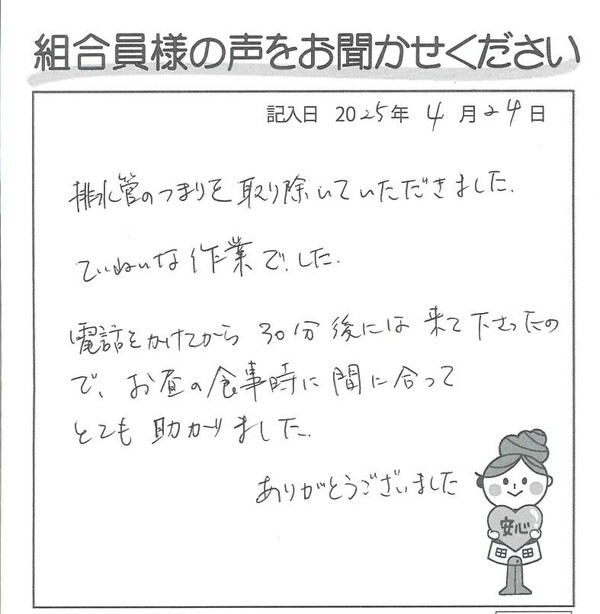 組合員様の声をお聞かせください
記入日 2025年 4月24日
排水管のつまりを取り除いていただきました。
ていねいな作業でした。
電話をかけてから 30分後には来て下さったの
で、お昼の食事時に間に合って
とても助かりました。
ありがとうございました
安心